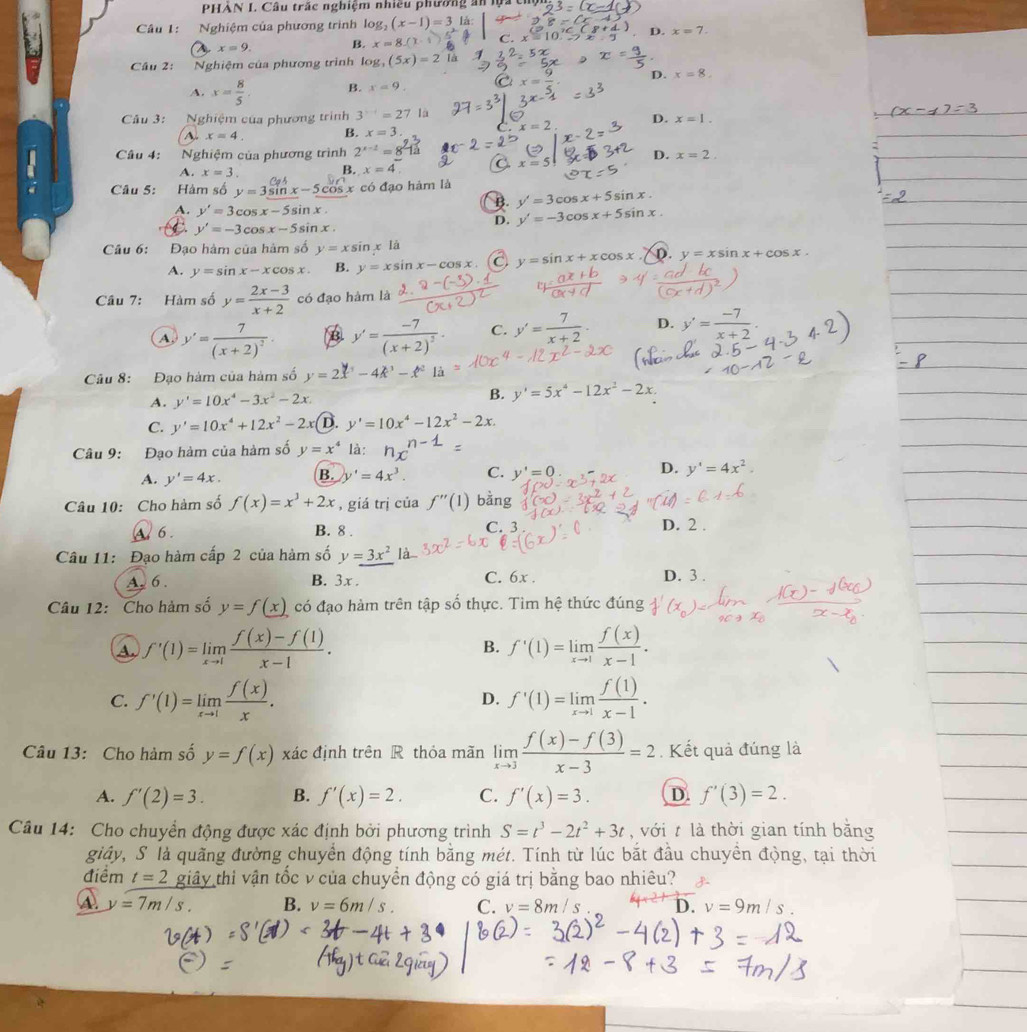 PHẦN I. Câu trắc nghiệm nhiều phương án lựa chọn
2^3 = (x-1)
Câu 1: Nghiệm của phương trình log₂(x−1)=3 là:
A. x=9. B. x=8. C. x=10. D. x=7.
Câu 2: Nghiệm của phương trình log₃(5x)=2 là
3^2=5x
x=9/5
A. x=8/5. B. x=9. C. x=9/5. D. x=8.
Câu 3: Nghiệm của phương trình 3^(x-1)=27 là
27=3^3
3x-1=3^3
A. x=4. B. x=3. C. x=2. D. x=1.
(x-1)=3
Câu 4: Nghiệm của phương trình 2^(x−2)=8 là
x-2=3
x=3+2
x=5
A. x=3. B. x=4. C. x=5. D. x=2.
=2
Câu 5: Hàm số y=3sin x−5cos x có đạo hàm là
A. y'=3cos x−5sin x. B. y'=3cos x+5sin x.
C. y'=−3cos x−5sin x. D. y'=−3cos x+5sin x.
Câu 6: Đạo hàm của hàm số y=x sin x là
A. y=sin x−x cos x. B. y=x sin x−cos x. C. y=sin x+x cos x. D. y=x sin x+cos x.
Câu 7: Hàm số y=(2x−3)/(x+2) có đạo hàm là
2.2-(-3).1/(x+2)^2
ax+b/cx+d → y'=ad-bc/(cx+d)^2
A. y'=7/(x+2)². B. y'=−7/(x+2)². C. y'=7/(x+2). D. y'=−7/(x+2).
Câu 8: Đạo hàm của hàm số y=2x⁵−4x³−x² là
= 10x^4-12x^2-2x
2.5-4.3
=10-12-2
=8
A. y'=10x⁴−3x²−2x. B. y'=5x⁴−12x²−2x.
C. y'=10x⁴+12x²−2x. D. y'=10x⁴−12x²−2x.
Câu 9: Đạo hàm của hàm số y=x⁴ là:
nx^(n-1) =
A. y'=4x. B. y'=4x³. C. y'=0. D. y'=4x².
Câu 10: Cho hàm số f(x)=x³+2x, giá trị của f''(1) bằng
f(x)=x^3+2x
f'(x)=3x^2+2
A. 6. B. 8. C. 3. D. 2.
Câu 11: Đạo hàm cấp 2 của hàm số y=3x² là
3x^2=6x
(6x)'=6
A. 6. B. 3x. C. 6x. D. 3.
Câu 12: Cho hàm số y=f(x) có đạo hàm trên tập số thực. Tìm hệ thức đúng
f'(x₀)=lim x→x₀ f(x)-f(x₀)/x-x₀
A. f'(1)=lim x→1 (f(x)−f(1))/(x−1). B. f'(1)=lim x→1 f(x)/(x−1).
C. f'(1)=lim x→1 f(x)/x. D. f'(1)=lim x→1 f(1)/(x−1).
Câu 13: Cho hàm số y=f(x) xác định trên ℝ thỏa mãn lim x→3 (f(x)−f(3))/(x−3)=2. Kết quả đúng là
A. f'(2)=3. B. f'(x)=2. C. f'(x)=3. D. f'(3)=2.
Câu 14: Cho chuyển động được xác định bởi phương trình S=t³−2t²+3t, với t là thời gian tính bằng
giây, S là quãng đường chuyển động tính bằng mét. Tính từ lúc bắt đầu chuyển động, tại thời
điểm t=2 giây thì vận tốc v của chuyển động có giá trị bằng bao nhiêu?
A. v=7m/s. B. v=6m/s. C. v=8m/s. D. v=9m/s.
v(t) = S'(t) = 3t - 4t + 3 | v(2) = 3(2)^2 - 4(2) + 3 = 12
(thay) t của 2 giây = 12 - 8 + 3 = 7m/s